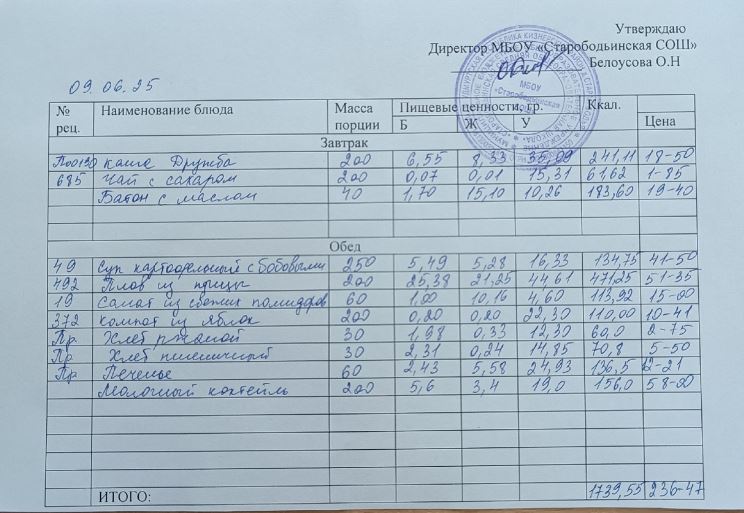 Утверждаю
Директор МБОУ «Старободьинская СОШ»
Белоусова О.Н
09.06.25
№ рец. Наименование блюда Масса порции Пищевые ценности, гр. Б Ж У Ккал. Цена
Завтрак
каша Дружба 200 6,55 8,33 35,09 241,11 18-50
685 Чай с сахаром 200 0,07 0,01 15,31 61,62 1-85
Батон с маслом 40 1,70 15,10 10,26 183,60 19-40
Обед
49 Суп картофельный с бобовыми 250 5,49 5,28 16,33 134,75 41-50
492 Плов из птицы 200 25,38 21,25 44,61 471,25 51-35
19 Салат из свежих помидоров 60 1,00 10,16 4,60 113,92 15-00
372 компот из яблок 200 0,20 0,20 22,30 110,00 10-41
Пр. Хлеб ржаной 30 1,98 0,33 12,30 60,0 2-75
Пр Хлеб пшеничный 30 2,31 0,24 14,85 70,8 5-50
Пр Печенье 60 2,43 5,58 24,93 136,5 12-21
Молочный коктейль 200 5,6 3,4 19,0 156,0 58-00
ИТОГО: 1739,55 236-47